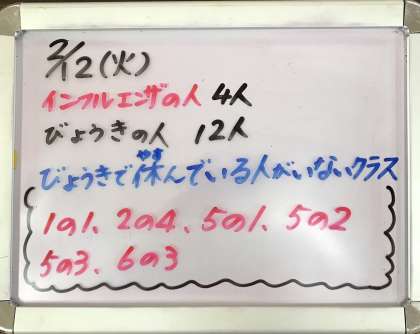 2/12(火)
インフルエンザの人 4人
びょうきの人 12人
やす
びょうきで休んでいる人がいないクラス
1の1、2の4、5の1、5の2
5の3、6の3